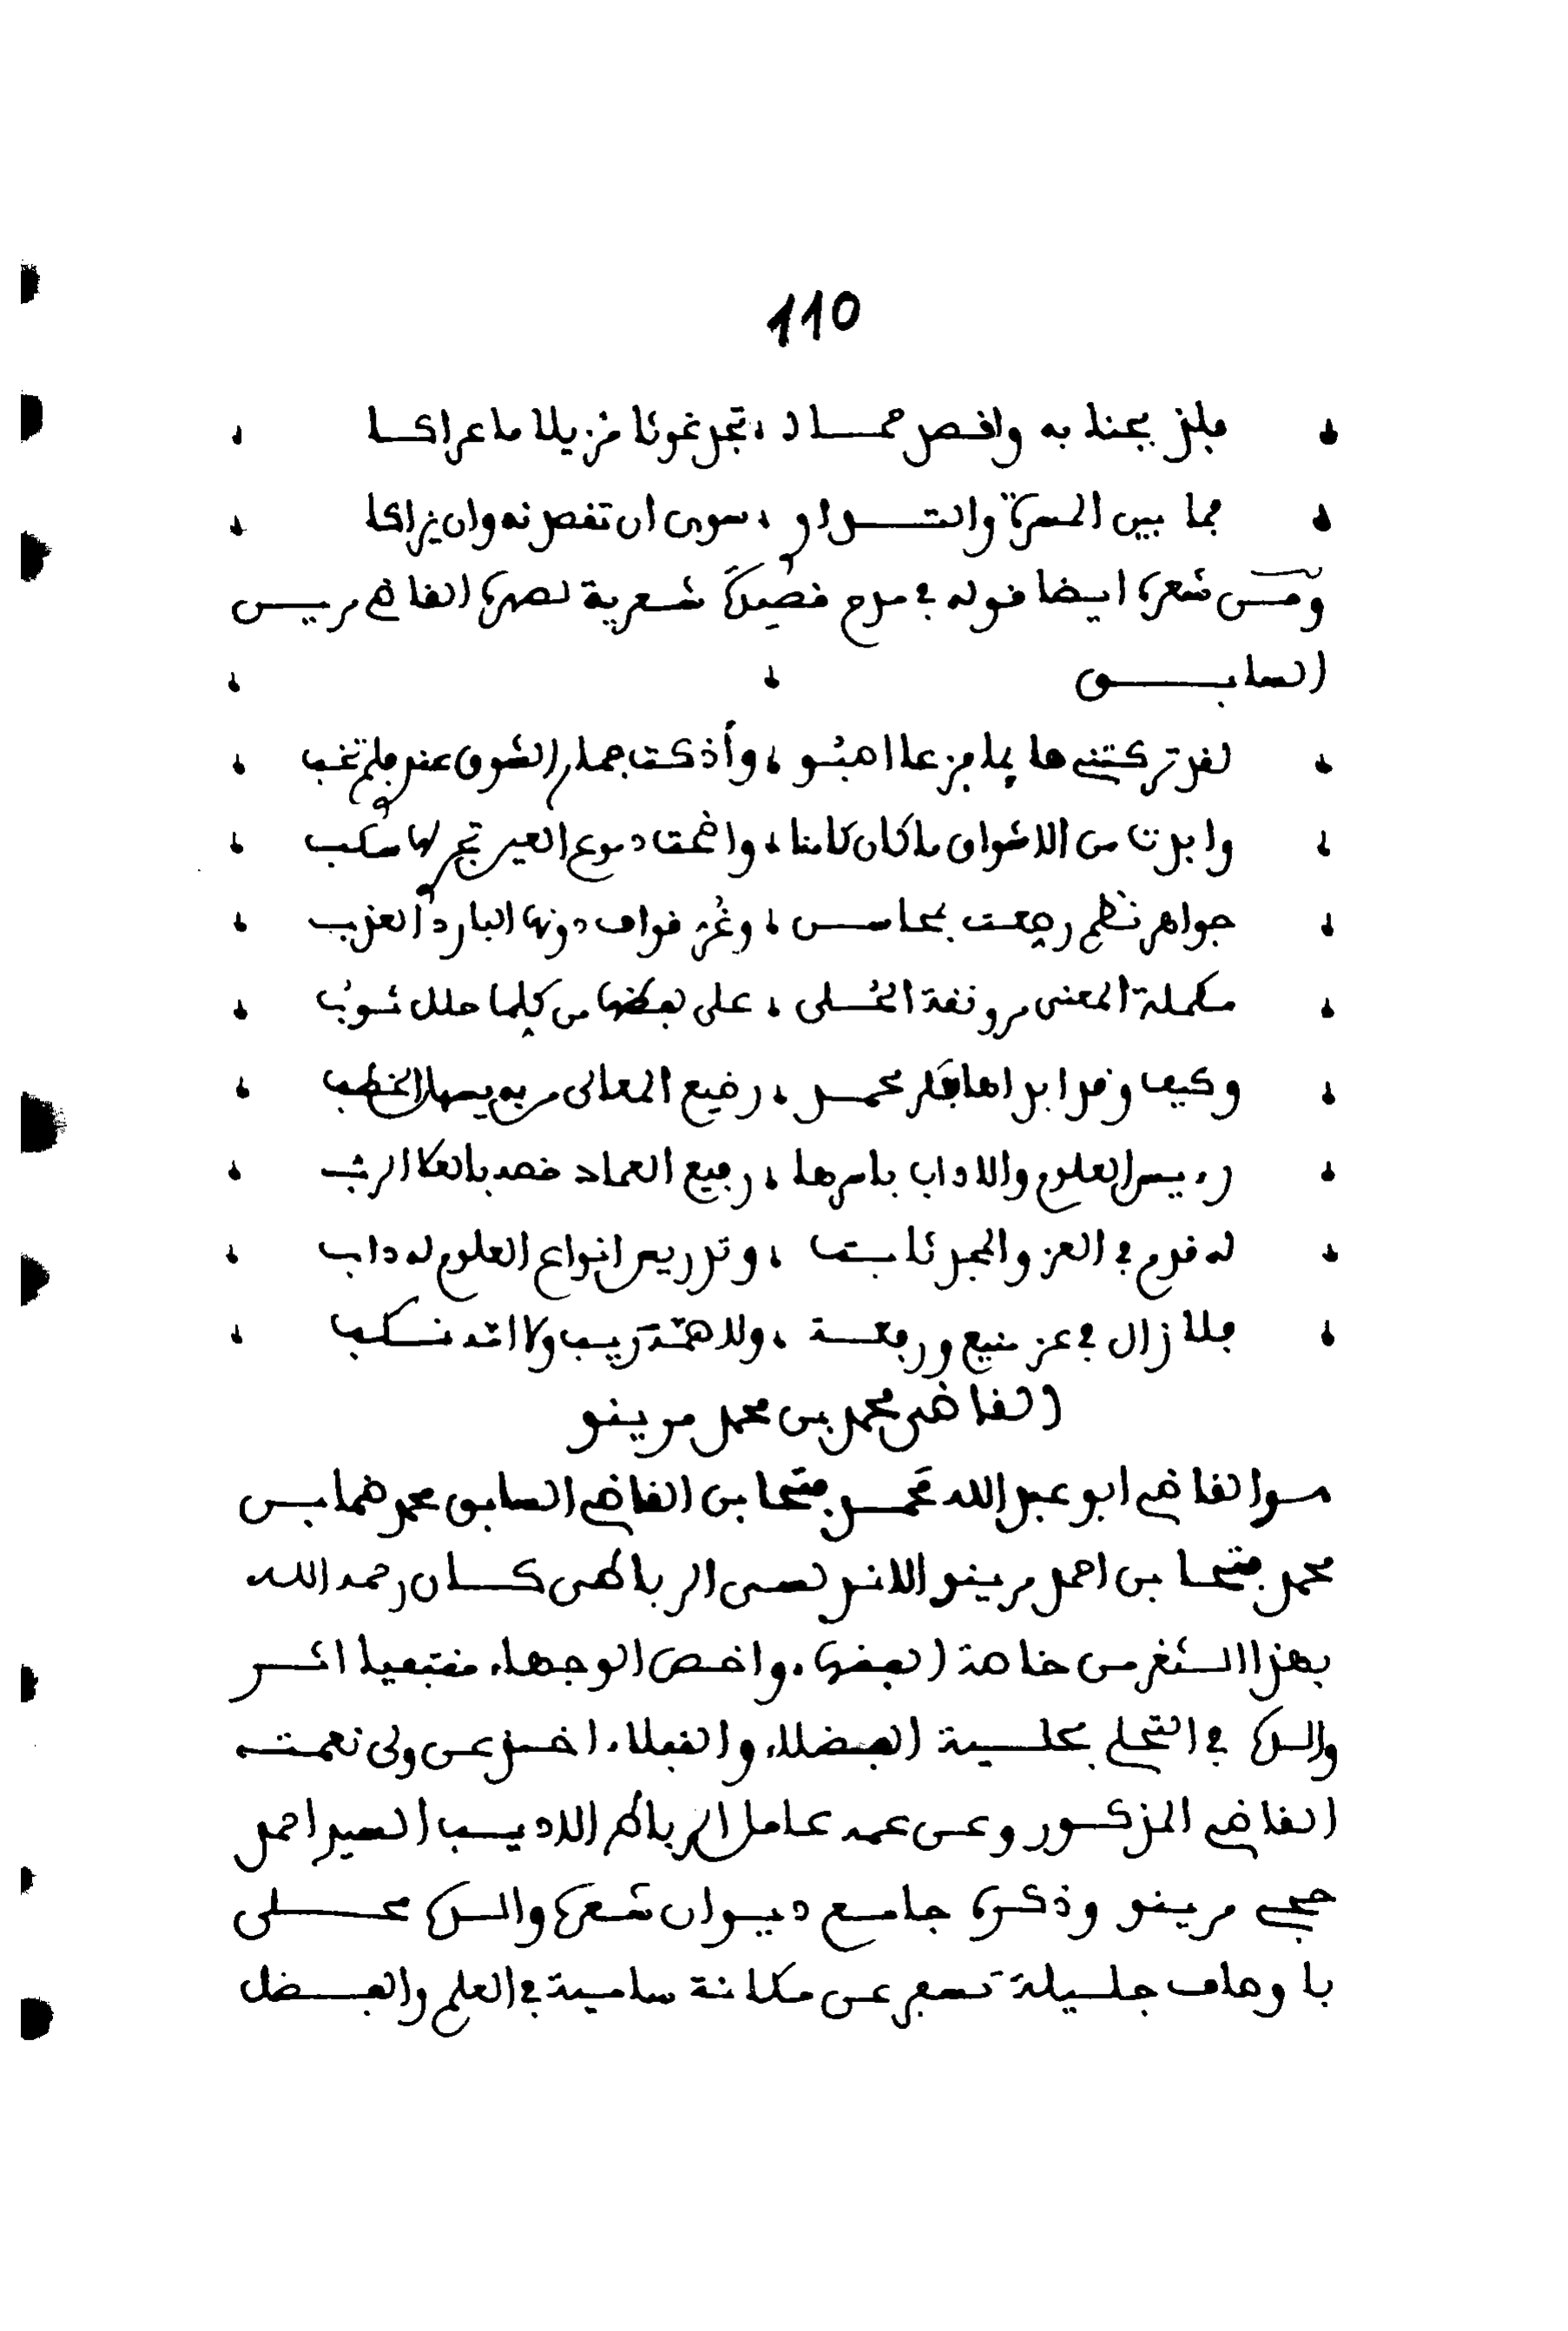 110
فلذ بجنابه واقصد حماه ، تجد غوثا مزيلا ما عراكا
فما بين المسرة والتداو ، سوى ان تقصدنه وان يراكا
ومن شعره ايضا قوله في مدح قصيدة شعرية لصهره القاضي مريـس
السابق
لقد تركتني هايما مزعا اهبو ، وأذكت جمار الشوق عند فلم تخب
وابدت من الاشواق ما كان كامنا ، واضحت دموع العين تجر لها سكب
جواهر نظم رصعت بمحاسن ، وغر قواف دونها البارد العذب
مكملة المعنى مرونقة الحلى ، على بعضها من كلما حلل شوب
وكيف وقد ابداها فكر محمد ، رفيع المعالى من به يسهل الخطب
رءيس العلوم والاداب باسرها ، رفيع العماد خصه بالعطا الرب
له قدم في العز والمجد ثابت ، وتدريس انواع العلوم له داب
فلا زال في عز منيع ورفعة ، ولا همة ريب ولا امه نكب
القاضى محمد بن محمد مرينو
هو القاضي ابو عبد الله محمد فتحا بن القاضي السابق محمد ضما بن
محمد فتحا بن احمد مرينو الاندلسى الرباطى كان رحمه الله
بهذا الثغر من خاصة الفقهاء واخص الوجهاء مقتفيا اثر
والده في التحلي بحلية الفضلاء والنبلاء اخذ عن ولى نعمته
القاضي المذكور وعن عمه عامل الرباط الاديب السيد احمد
حجي مرينو وذكره جامع ديوان شعره والده محلى
باوصاف جليلة تسفر عن مكانة سامية في العلم والفضل